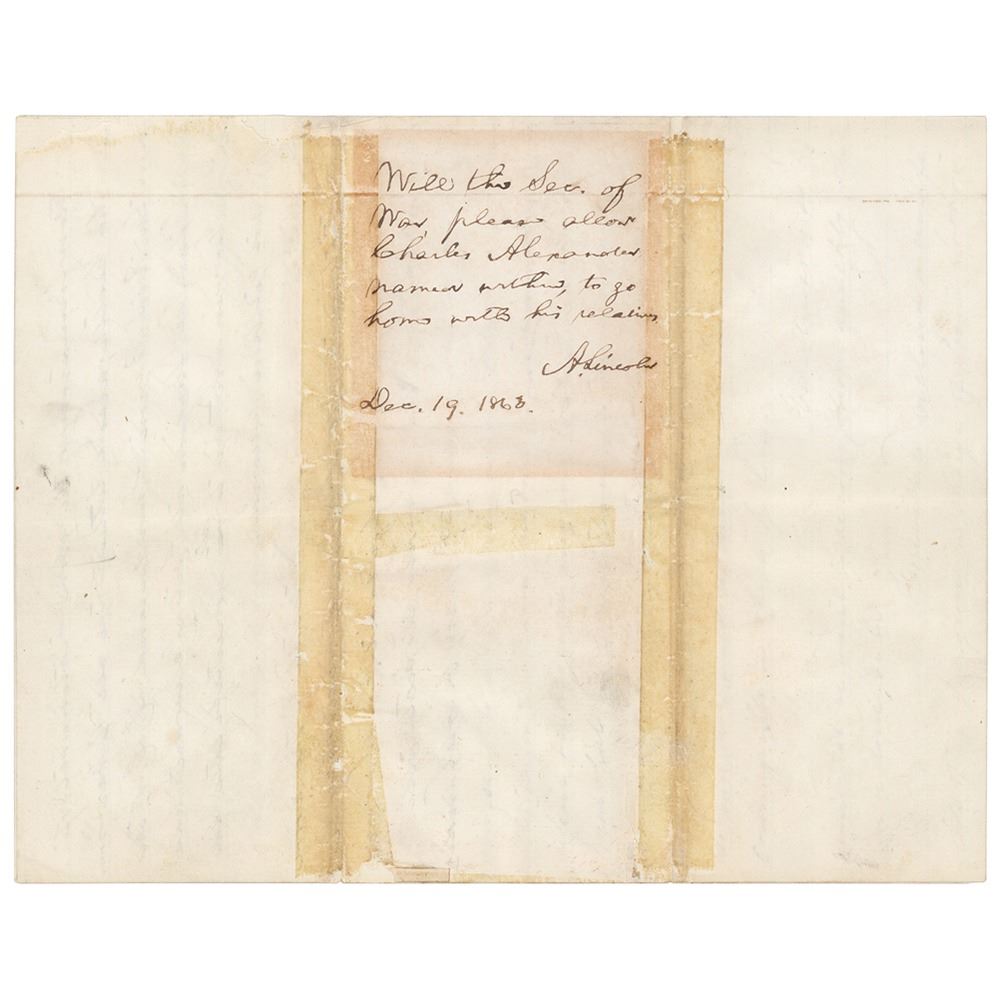 Will the Sec. of
War, please allow
Charles Alexander
named within, to go
home with his relatives.
A. Lincoln
Dec. 19. 1863.